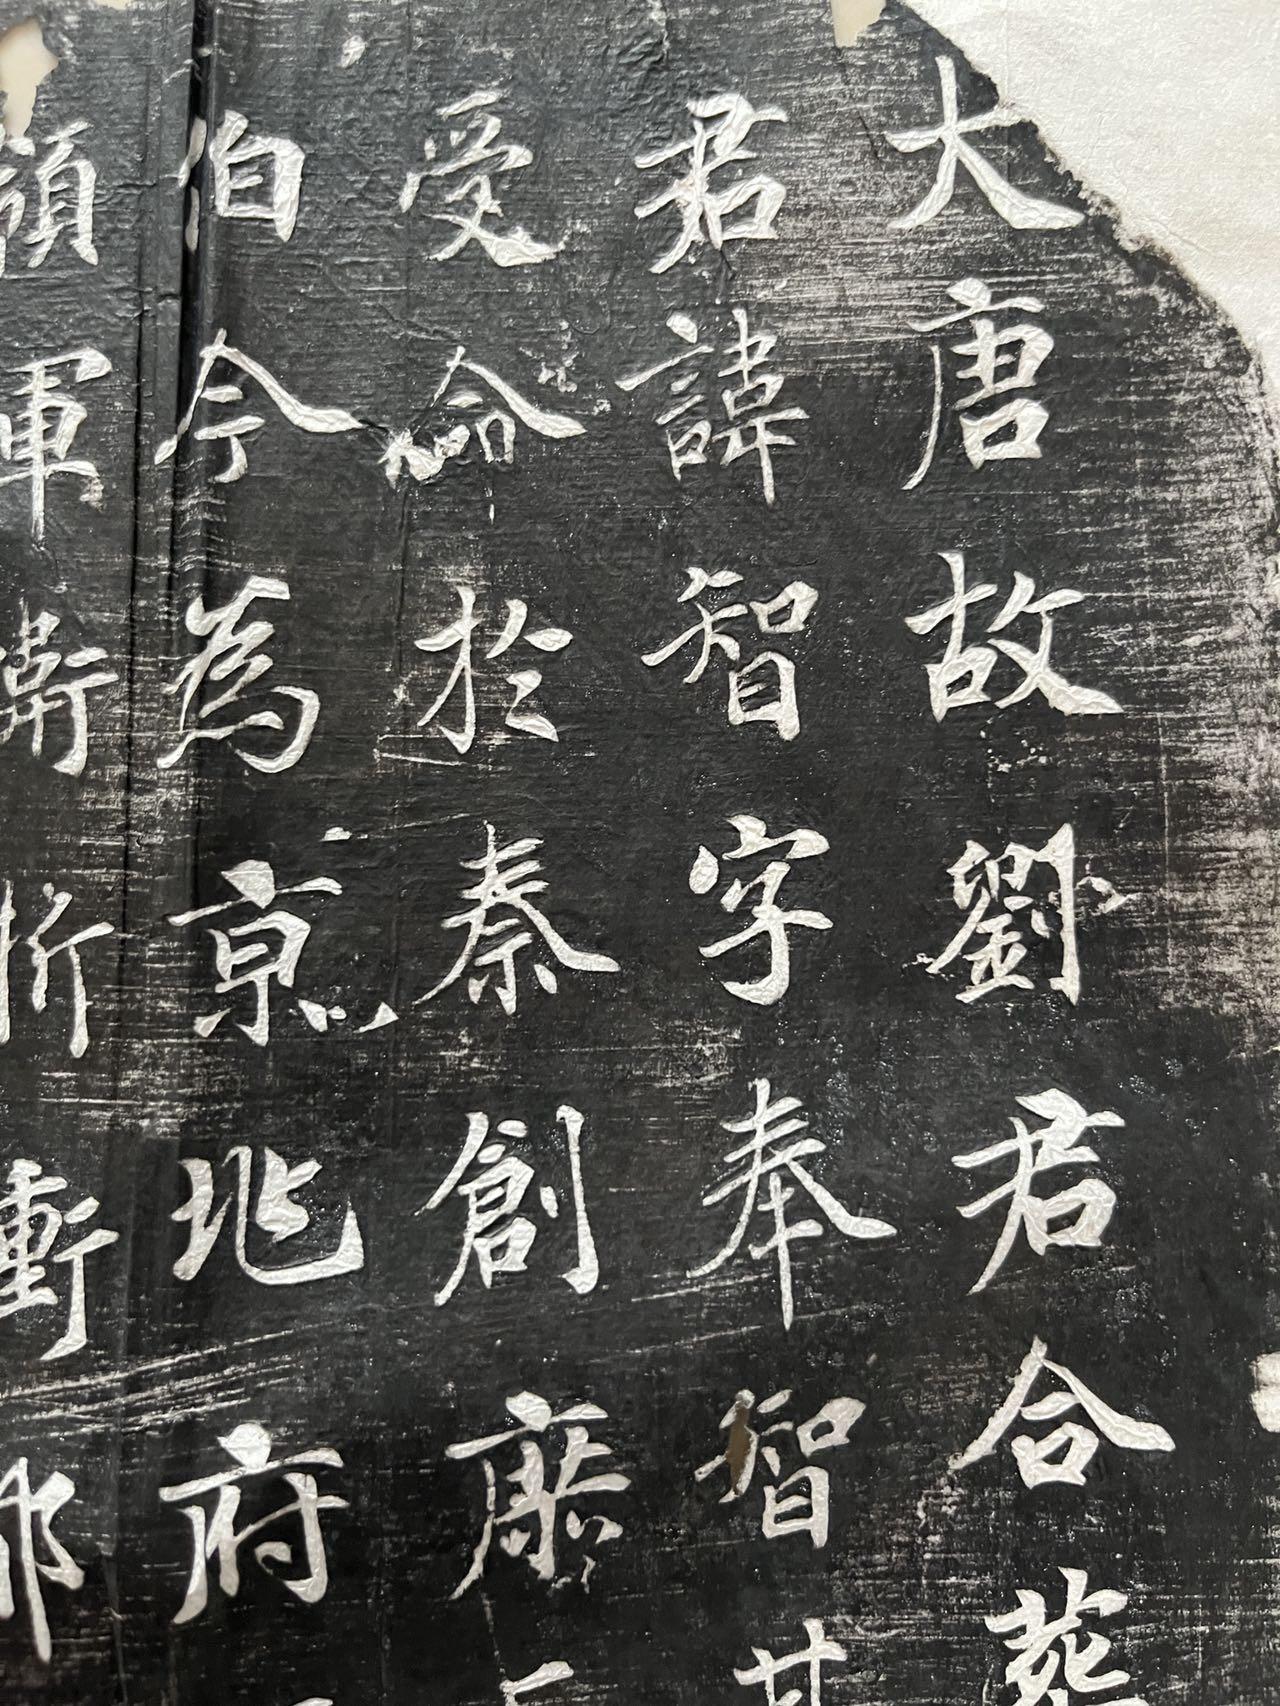 大唐故劉君合葬
君諱智字奉智其
受命於秦創
伯今為京兆府
領軍衛折衝郎